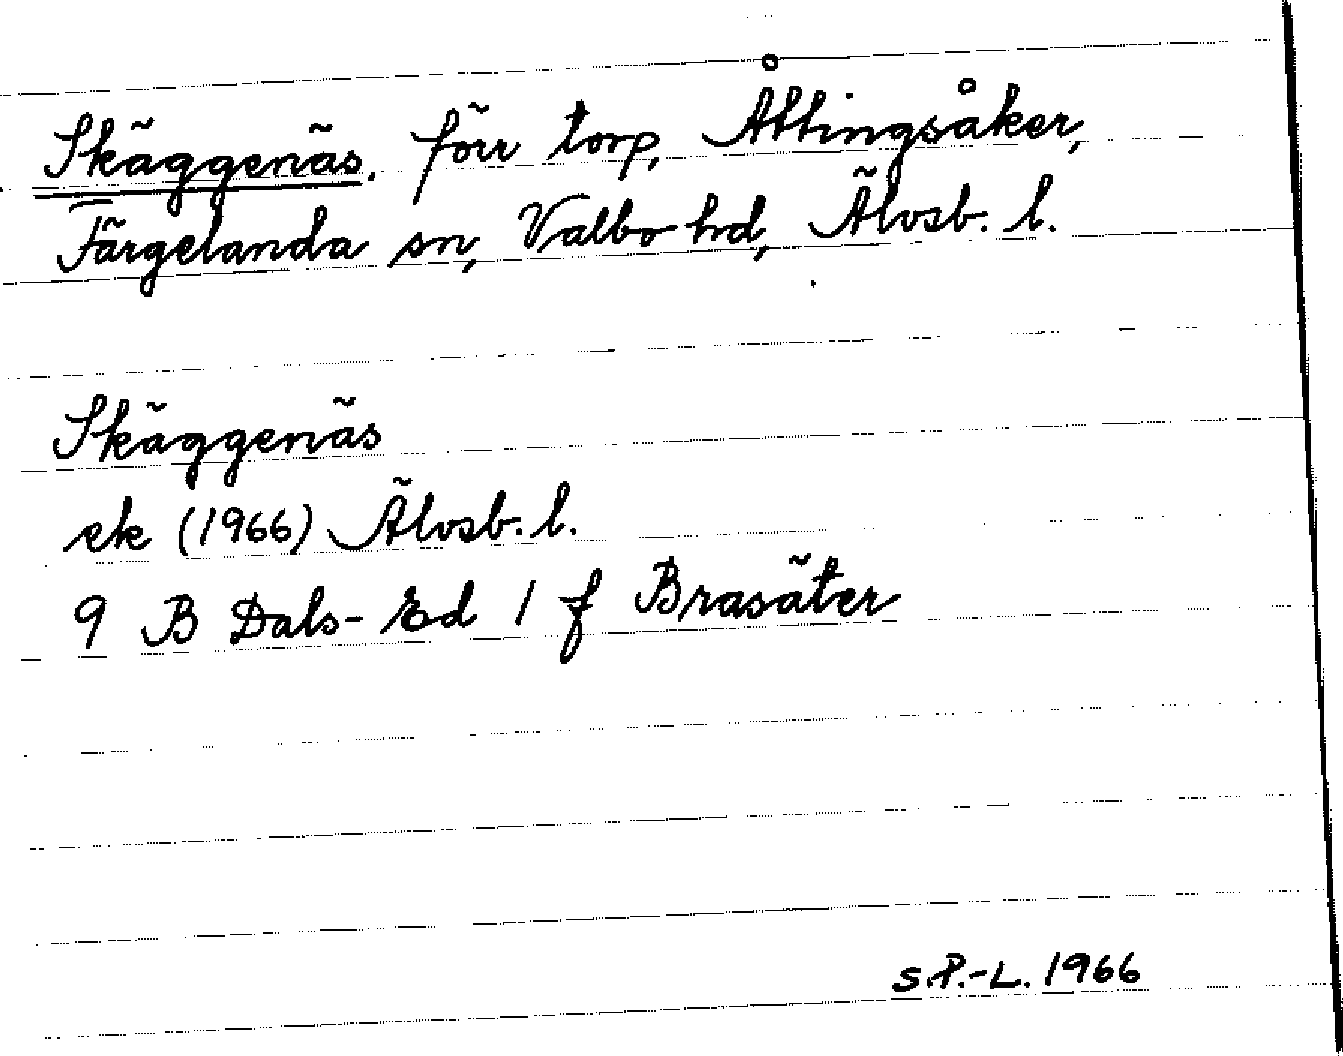 Skäggenäs, förr torp, Åttingsåker,
Färgelanda sn, Valbo hd, Älvsb. l.
Skäggenäs
ek (1966) Älvsb. l.
9 B Dals-Ed 1 f Brasäter
S.P.-L. 1966